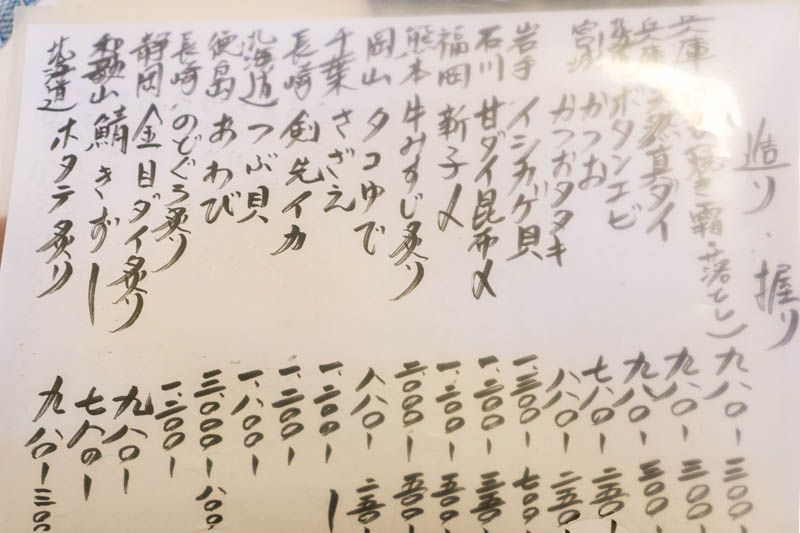 造り・握り
兵庫 焼き霜・落とし) 九八〇ー 三〇〇
兵庫 天然真ダイ 九八〇ー 三〇〇
ボタンエビ 九八〇ー 五〇〇
かつお 七八〇ー 二五〇
宮城 かつおタタキ 八八〇ー 二五〇
岩手 イシカゲ貝 一、三〇〇ー 七〇〇
石川 甘ダイ昆布〆 一、二〇〇ー 三五〇
福岡 新子〆 一、二〇〇ー 五〇〇
熊本 牛みすじ炙り 二、〇〇〇ー 五〇〇
岡山 タコゆで 八八〇ー 二五〇
千葉 さざえ 一、二〇〇ー ー
長崎 剣先イカ 一、二〇〇ー
北海道 つぶ貝 一、八〇〇ー
徳島 あわび 三、〇〇〇ー 八〇〇
長崎 のどぐろ炙り 一、二〇〇ー
静岡 金目ダイ炙り 九八〇ー
和歌山 鯖きずし 七八〇ー
北海道 ホタテ炙り 九八〇ー 三〇〇